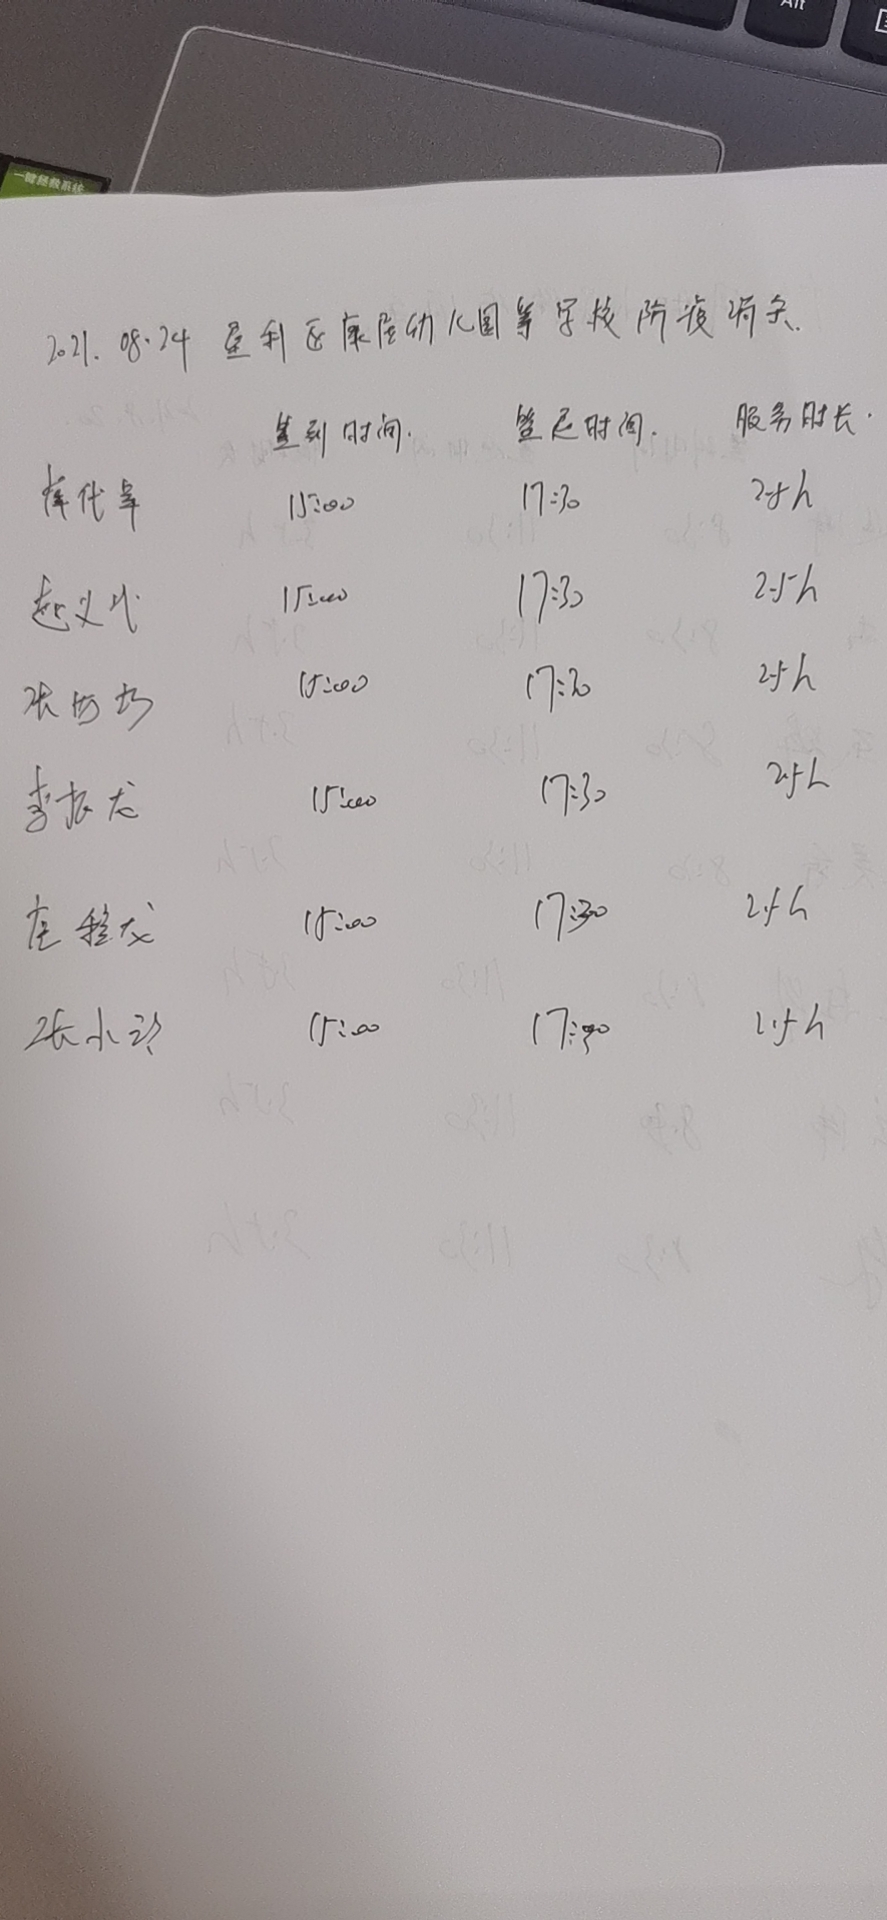 Alt
一键拯救系统
2021.08.24 垦利区康居幼儿园等学校防疫消杀.
签到时间. 签退时间. 服务时长.
15:00 17:30 2.5h
赵义 15:00 17:30 2.5h
张 15:00 17:30 2.5h
李振龙 15:00 17:30 2.5h
龙 15:00 17:30 2.5h
张小 15:00 17:30 2.5h